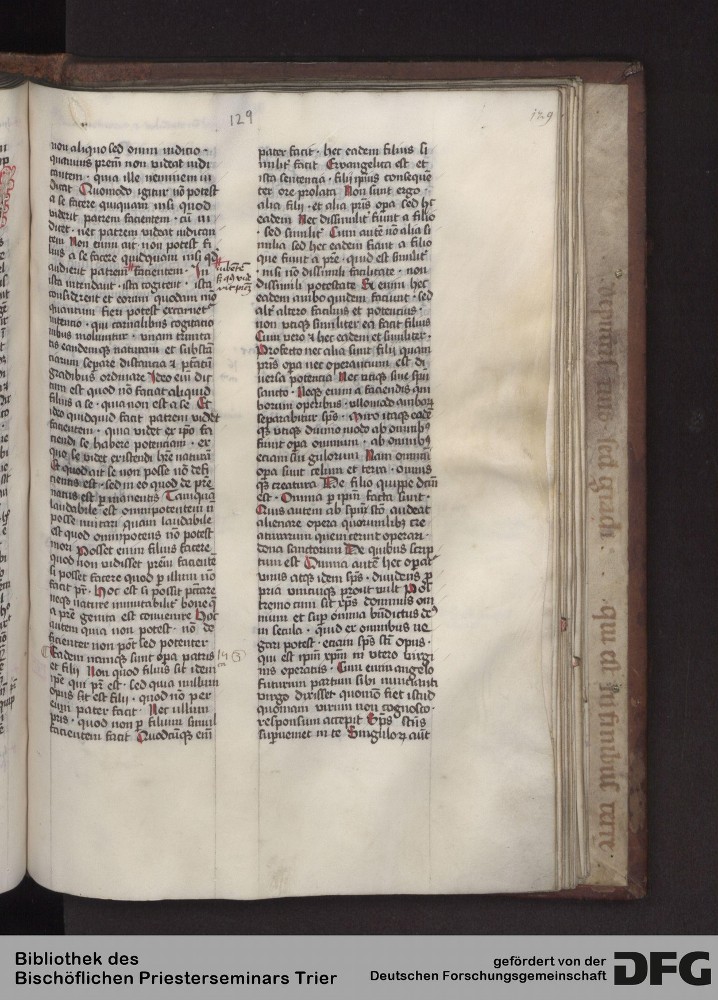 129
129
non aliquo sed omni iudicio ·
quamuis prem̄ non videat iudi
cantem · quia ille neminem iu
dicat Quomodo igitur nō potest
a se facere quiquam nisi quod
viderit patrem facientem · cū iu
dicet · nec patrem videat iudican
tem Non enim ait non potest fi
lius a se facere quidquam nisi qd̄
audierit patrem facientem · In
ista intendant · ista cogitent · ista
considerent et eorum quodam mō
quantum fieri potest
intentio · qui carnalibus cogitatio
nibus moluntur · vnam trinita
tis eandemque naturam et substā
ciarum separe distancia et
gradibus ordinare Ideo em̄ dic
tum est quod nō faciat aliquid
filius a se · quia non est a se Et
ideo quidquid facit patrem videt
facientem · quia videt ex ip̄o fa
ciendi se habere potenciam · ex
quo se videt existendi h̄re naturā
Et quod ait se non posse nō defi
cientis est · sed in eo quod de pr̄e
natus est p̱manentis Tamqua
laudabile est omnipotentem n̄
posse mutari quam laudabile
est quod omnipotens nō potest
mori Posset enim filius facere
quod non vidisset prēm facientē
si posset facere quod p̱ illum nō
facit pr̄ · hoc est si posset pccāre
neqꝫ nature inmutabilit̄ boneqꝫ
a pr̄e genita est conuenire Hoc
autem quia non potest · nō de
ficienter non pōt sed potenter
Eadem namqꝫ sunt op̄a patris
et filij Non quod filius sit idem
ip̄e qui pr̄ est · sed quia nullum
opus sit est filij · quod nō per
eum pater facit · Nec ullum
pr̄is · quod non p̱ filium simul
facientem facit Quodcūqꝫ em̄
pater facit · hec eadem filius si
milit̄ facit Ewangelica est et
ista sentencia · filij ip̄ius consequēn
ter ore prolata Non sunt ergo ·
alia filij · et alia pr̄is opa sed hec
eadem Nec dissimilit̄ fiunt a filio
· sed similit̄ Cum autē nō alia si
milia sed hec eadem fiant a filio
que fiunt a pr̄e · quid est similit̄
· nisi nō dissimili facilitate · non
dissimili potestate Si enim hec
eadem ambo quidem faciunt · sed
alt̄ altero facilius et potencius ·
non vtiqꝫ similiter ea facit filius
Cum vero et hec eadem et similiter ·
Profecto nec alia sunt filij quam
pr̄is op̄a nec operantium est di
uersa potencia Nec vtiqꝫ sine sp̄u
sancto · Neqꝫ enim a faciendis am
borum operibus · vllomodo amborꝝ
separabitur sp̄s · Miro itaqꝫ eodē
qꝫ vtiqꝫ diuino modo ab omnibꝰ
fiunt opa omnium · ab omnibꝰ
eciam singulorum Nam omniū
opa sunt celum et terra · omnis
qꝫ creatura De filio quippe dcm̄
est · Omnia p̱ ip̄m facta sunt ·
Quis autem ab sp̄u scō audeat
alienare opera quorumlibꝫ cre
aturarum quem cernit operari ·
dona sanctorum De quibus scrip
tum est Omnia autē hec opat̄
vnus atqꝫ idem sp̄s · diuidens p̱
pria vnicuiqꝫ prout vult Pos
tremo cum sit xp̄s dominus om
nium et sup omnia bn̄dictus deꝰ
in secula · quid ex omnibus ne
gari potest · eciam sp̄s scī opus ·
qui est ip̄m xp̄m in vtero virgi
nis operatus · Cum enim angelo
futurum partum sibi nuncianti
virgo dixisset · quomō fiet istud
quoniam virum non cognosco ·
responsum accepit Sp̄s scūs
supueniet in te Singulorꝝ aūt
Bibliothek des
Bischöflichen Priesterseminars Trier
gefördert von der
Deutschen Forschungsgemeinschaft
DFG